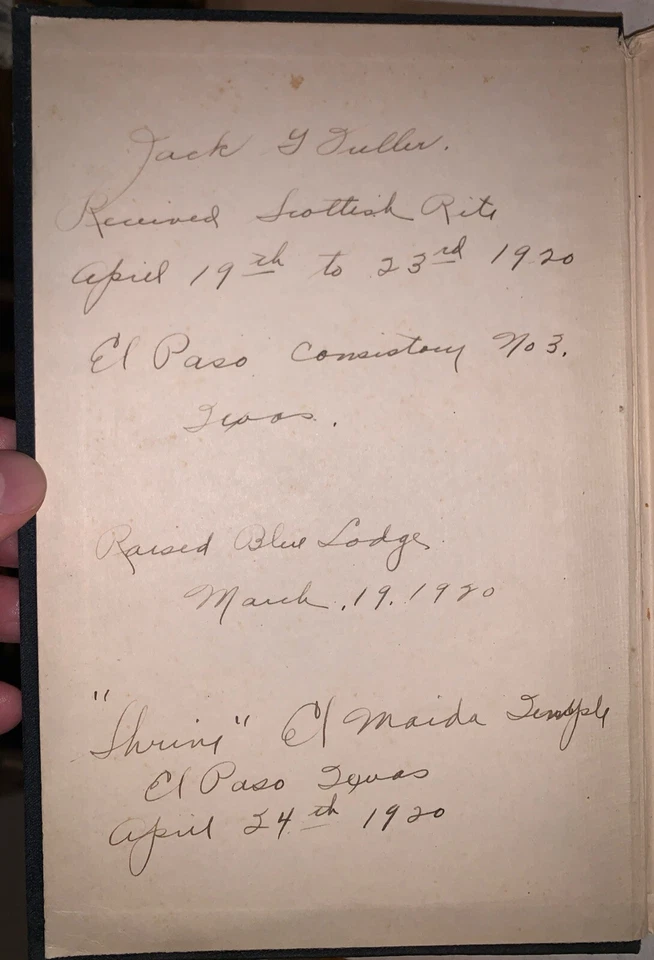 Jack G Fuller.
Received Scottish Rite
April 19th to 23rd 1920
El Paso Consistory No 3.
Texas.
Raised Blue Lodge
March. 19. 1920
"Shrine" El Maida Temple
El Paso Texas
April 24th 1920